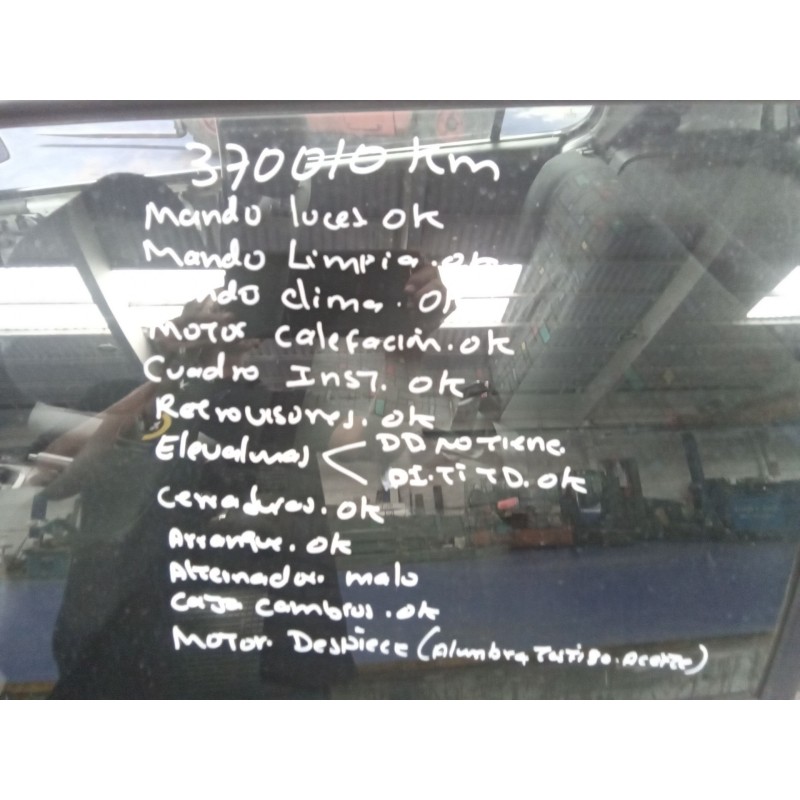 370010 km
Mando luces ok
Mando Limpia. ok
ndo clima. ok
Motor calefación. ok
Cuadro Inst. ok
Retrovisores. ok
Elevalunas < DD NO Tiene
DI. Ti TD. ok
Cerraduras. ok
Arranque. ok
Alternador malo
Caja Cambios. ok
Motor. Despiece (Alumbra Testigo. Aceite)